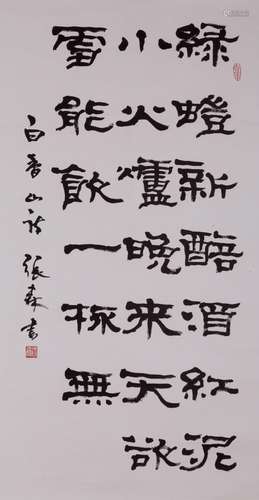 綠螘新醅酒紅泥
小火爐晚來天欲
雪能飲一杯無
白香山詩 張森書